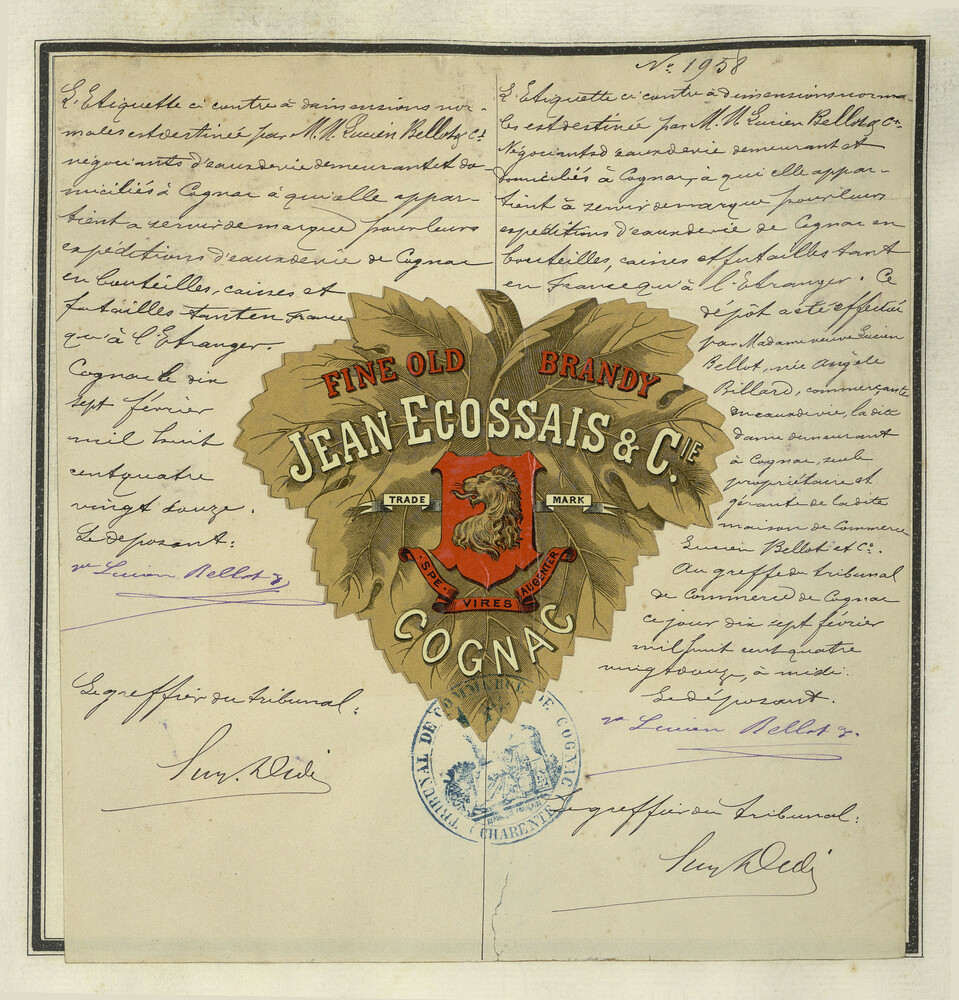 L'Etiquette ci contre à dimensions nor-
males est destinée par M.M. Lucien Bellot & Cie
négociants d'eaux de vie demeurant et do-
miciliés à Cognac à qui elle appar-
tient a servir de marque pour leurs
expéditions d'eaux de vie de Cognac
en bouteilles, caisses et
futailles tant en France
qu'à l'Etranger.
Cognac le dix
sept février
mil huit
cent quatre
vingt douze.
Le déposant:
Ve Lucien Bellot &
Le greffier du tribunal:
No 1958
L'Etiquette ci contre à dimensions norma-
les est destinée par M.M. Lucien Bellot & Cie
Négociants d'eaux de vie demeurant et
domiciliés à Cognac, a qui elle appar-
tient à servir de marque pour leurs
expéditions d'eaux de vie de Cognac en
bouteilles, caisses et futailles tant
en France qu'à l'Etranger. Ce
dépôt a été effectué
par Madame veuve Lucien
Bellot, née Angèle
Billard, commerçante
en eaux de vie, la dite
dame demeurant
à Cognac, seule
propriétaire et
gérante de la dite
maison de Commerce
Lucien Bellot et Cie.
Au greffe du tribunal
de Commerce de Cognac
ce jour dix sept février
mil huit cent quatre
vingt douze, à midi.
Le déposant.
Ve Lucien Bellot &
Le greffier du tribunal:
FINE OLD BRANDY
JEAN ECOSSAIS & CIE
TRADE MARK
SPE VIRES AUGENTER
COGNAC
TRIBUNAL DE COMMERCE DE COGNAC
(CHARENTE)